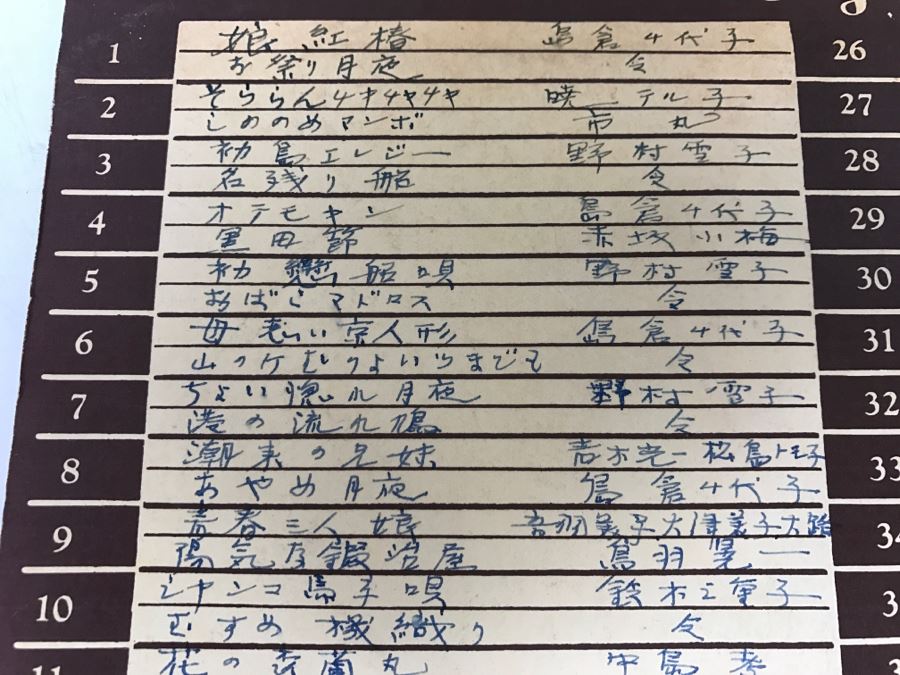 1 娘 紅 椿 島倉千代子 26
お祭り月夜 〃
2 そららんチヤチヤチヤ 暁テル子 27
しののめマンボ 市丸
3 初島エレジー 野村雪子 28
名残り船 〃
4 オテモヤン 島倉千代子 29
黒田節 赤坂小梅
5 初戀船唄 野村雪子 30
おばこマドロス 〃
6 母 京人形 島倉千代子 31
山の よいつまでも 〃
7 ちょい隠れ月夜 野村雪子 32
港の流れ鳩 〃
8 潮来の兄妹 青木光一 松島トモ子 33
あやめ月夜 島倉千代子
9 青春三人娘 大津美子 34
陽気な鍛治屋 鳥羽晃一
10 シヤンコ馬子唄 鈴木三重子 3
むすめ機織り 〃
11 花の森蘭丸 中島孝